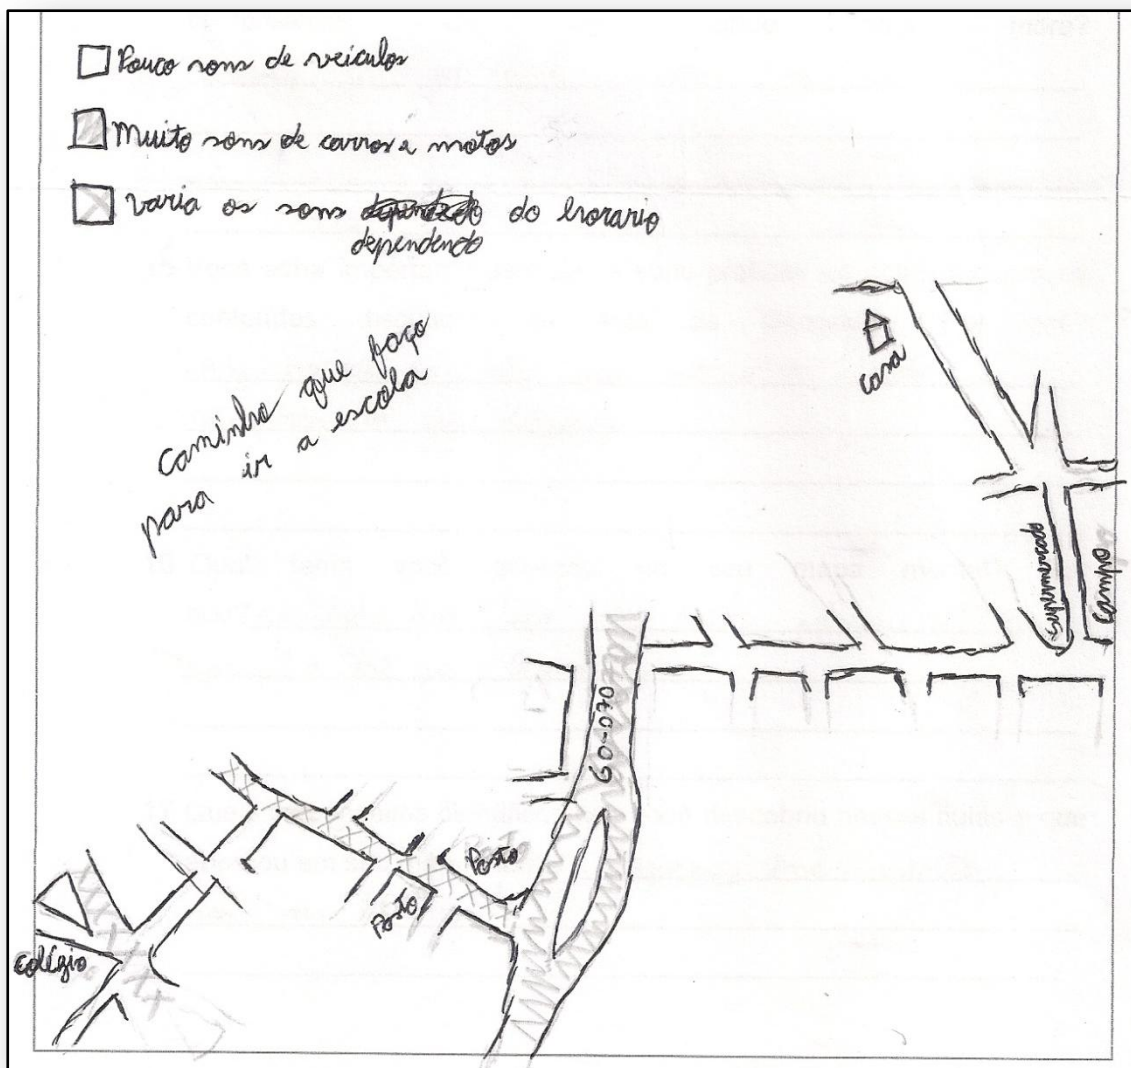 Pouco sons de veículos
Muito sons de carros e motos
varia os sons do horario
dependendo
caminho que faço
para ir a escola
casa
campo
GO-070
Posto
Posto
colégio